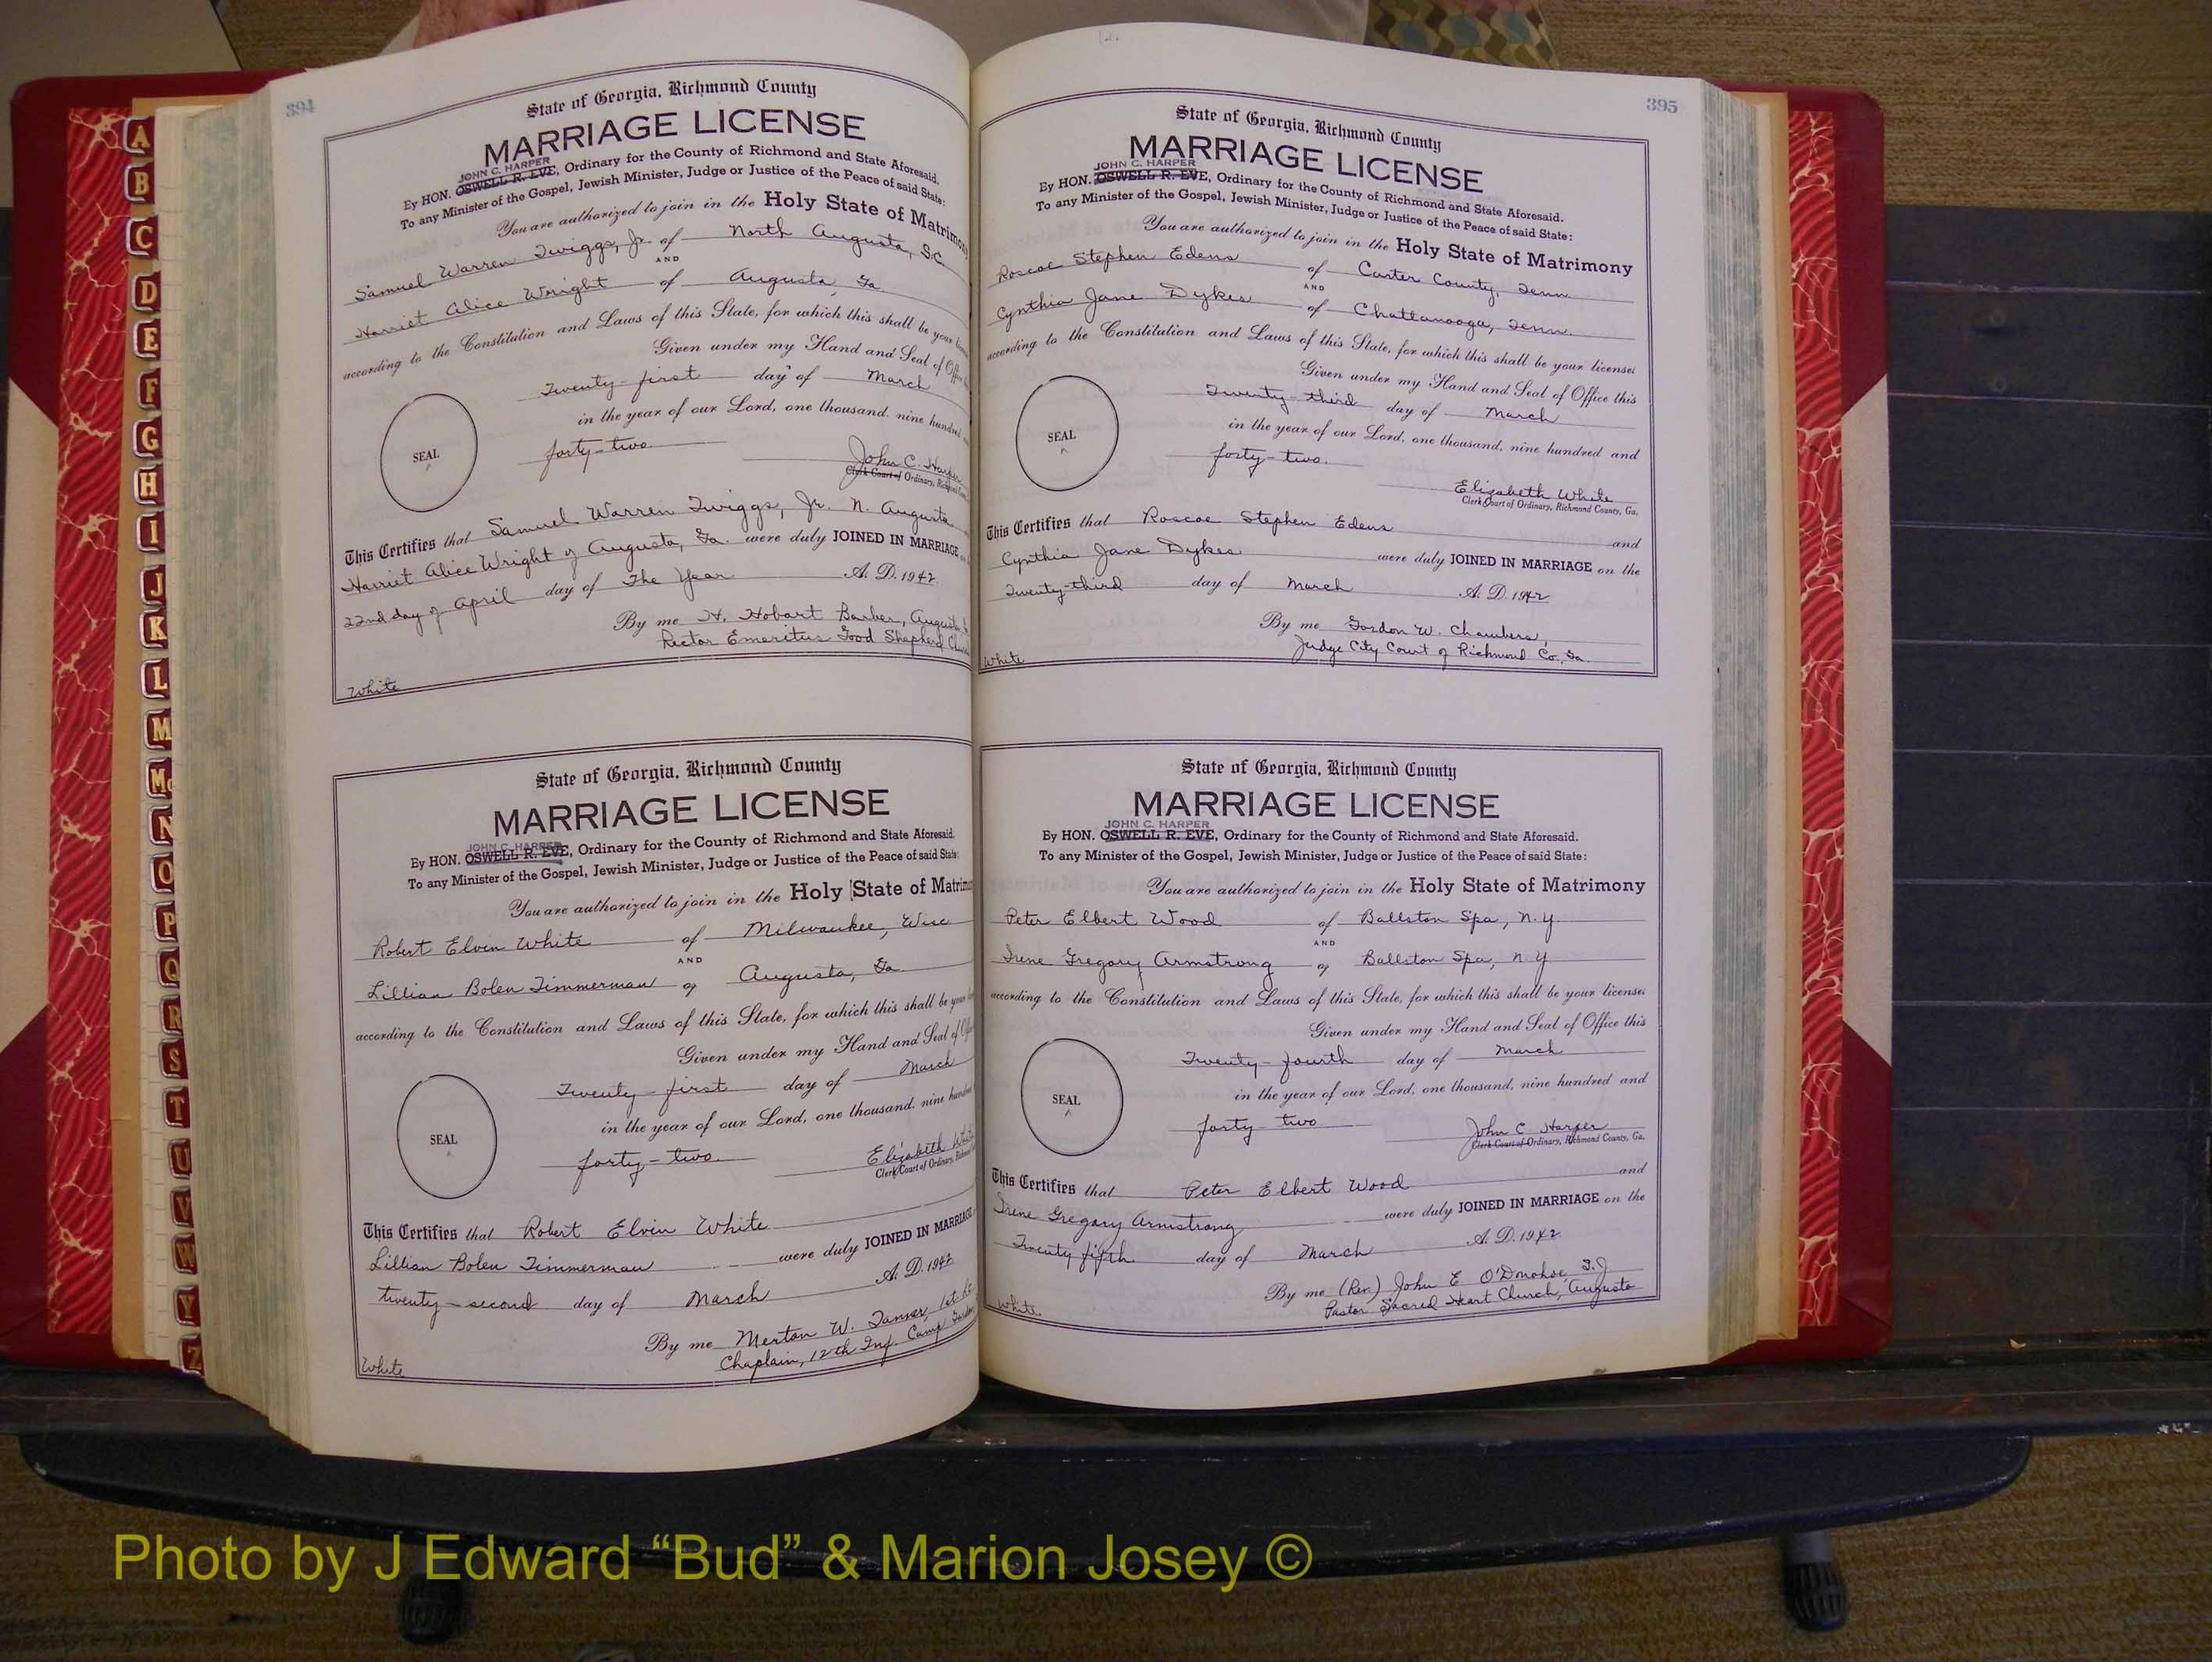 394
State of Georgia, Richmond County
MARRIAGE LICENSE
JOHN C. HARPER
By HON. OSWELL R. EVE, Ordinary for the County of Richmond and State Aforesaid.
To any Minister of the Gospel, Jewish Minister, Judge or Justice of the Peace of said State:
You are authorized to join in the Holy State of Matrimony
Samuel Warren Twiggs, Jr. of North Augusta, S.C.
AND
Harriet Alice Wright of Augusta, Ga.
according to the Constitution and Laws of this State, for which this shall be your
Given under my Hand and Seal of
Twenty-first day of March
in the year of our Lord, one thousand, nine hundred
SEAL
forty-two
John C. Harper
Clerk Court of Ordinary,
This Certifies that Samuel Warren Twiggs, Jr. N. Augusta
Harriet Alice Wright of Augusta, Ga. were duly JOINED IN MARRIAGE
22nd day of April day of The Year A. D. 1942
By me H. Hobart Barber,
Rector Emeritus Good Shepherd
White
State of Georgia, Richmond County
MARRIAGE LICENSE
JOHN C. HARPER
By HON. OSWELL R. EVE, Ordinary for the County of Richmond and State Aforesaid.
To any Minister of the Gospel, Jewish Minister, Judge or Justice of the Peace of said State:
You are authorized to join in the Holy State of
Robert Elvin White of Milwaukee, Wisc
AND
Lillian Bolen Timmerman of Augusta, Ga.
according to the Constitution and Laws of this State, for which this shall be your
Given under my Hand and Seal of
Twenty-first day of March
in the year of our Lord, one thousand, nine
SEAL
forty-two
Elizabeth White
Clerk Court of Ordinary,
This Certifies that Robert Elvin White
Lillian Bolen Timmerman were duly JOINED IN MARRIAGE
twenty-second day of March A. D. 1942
By me Merton W. Tanner, 1st
Chaplain, 12th Inf. Camp
White
395
State of Georgia, Richmond County
MARRIAGE LICENSE
JOHN C. HARPER
By HON. OSWELL R. EVE, Ordinary for the County of Richmond and State Aforesaid.
To any Minister of the Gospel, Jewish Minister, Judge or Justice of the Peace of said State:
You are authorized to join in the Holy State of Matrimony
Roscoe Stephen Edens of Carter County, Tenn.
AND
Cynthia Jane Dykes of Chattanooga, Tenn.
according to the Constitution and Laws of this State, for which this shall be your license:
Given under my Hand and Seal of Office this
Twenty-third day of March
in the year of our Lord, one thousand, nine hundred and
SEAL
forty-two.
Elizabeth White
Clerk Court of Ordinary, Richmond County, Ga.
This Certifies that Roscoe Stephen Edens and
Cynthia Jane Dykes were duly JOINED IN MARRIAGE on the
Twenty-third day of March A. D. 1942
By me Gordon W. Chambers,
Judge City Court of Richmond Co., Ga.
White
State of Georgia, Richmond County
MARRIAGE LICENSE
JOHN C. HARPER
By HON. OSWELL R. EVE, Ordinary for the County of Richmond and State Aforesaid.
To any Minister of the Gospel, Jewish Minister, Judge or Justice of the Peace of said State:
You are authorized to join in the Holy State of Matrimony
Peter Elbert Wood of Ballston Spa, N.Y.
AND
Irene Gregory Armstrong of Ballston Spa, N.Y.
according to the Constitution and Laws of this State, for which this shall be your license:
Given under my Hand and Seal of Office this
Twenty-fourth day of March
in the year of our Lord, one thousand, nine hundred and
SEAL
forty-two
John C. Harper
Clerk Court of Ordinary, Richmond County, Ga.
This Certifies that Peter Elbert Wood and
Irene Gregory Armstrong were duly JOINED IN MARRIAGE on the
Twenty fifth day of March A. D. 1942
By me (Rev.) John E. O'Donohoe, S.J
Pastor Sacred Heart Church, Augusta
White
A
B
C
D
E
F
G
H
I
J
K
L
M
Mc
N
O
P
Q
R
S
T
U
V
W
Y
Z
Photo by J Edward “Bud” & Marion Josey ©